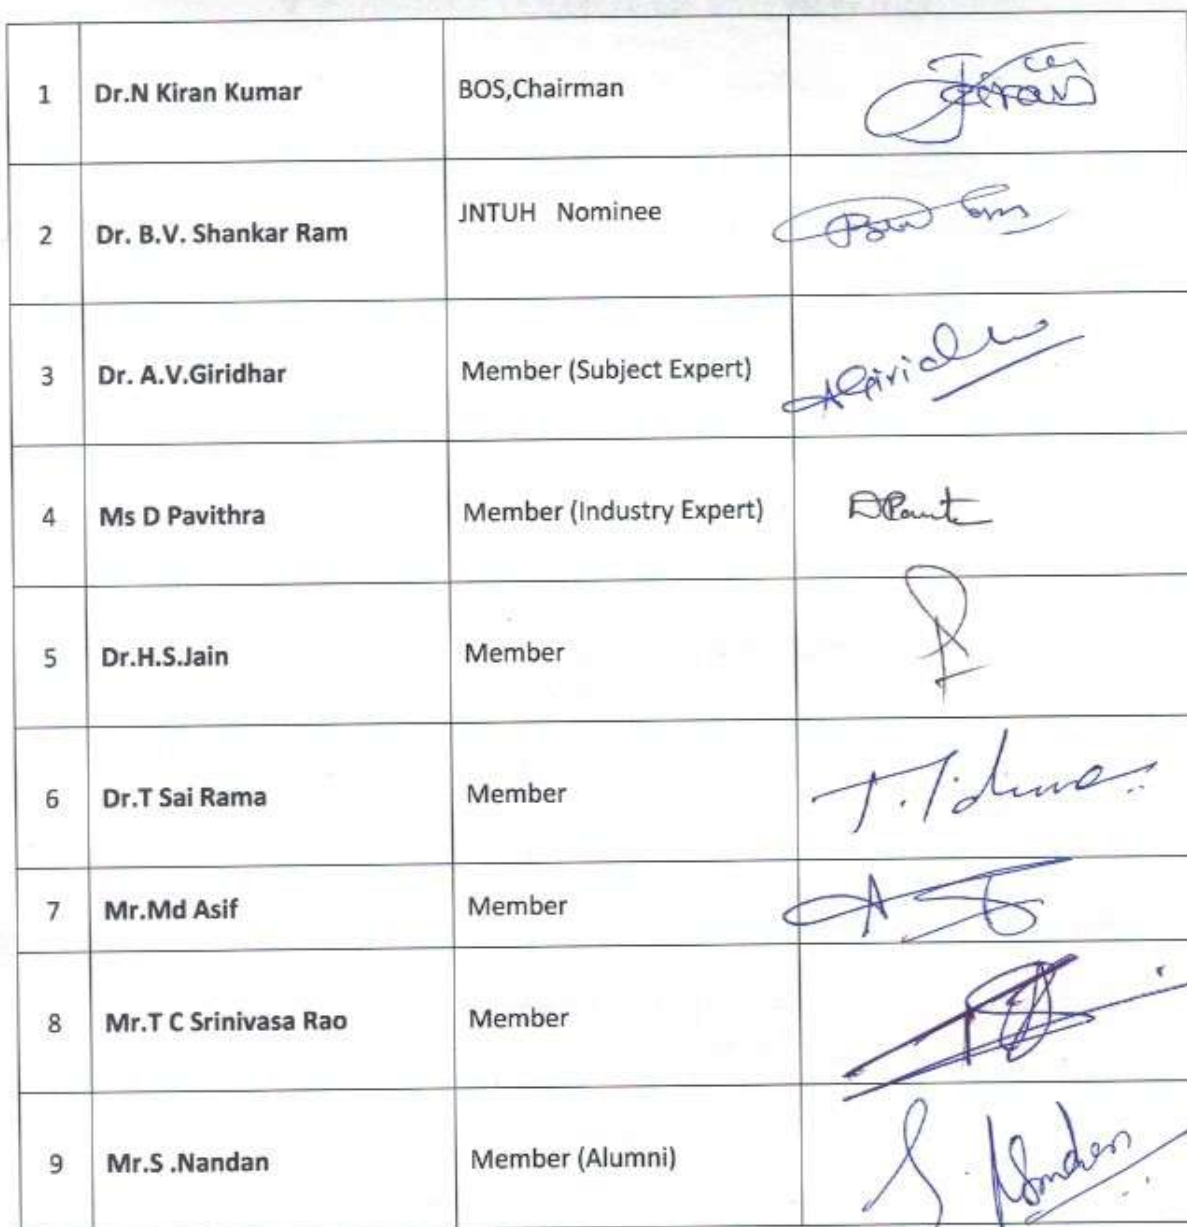 1 Dr.N Kiran Kumar BOS,Chairman
2 Dr. B.V. Shankar Ram JNTUH Nominee
3 Dr. A.V.Giridhar Member (Subject Expert)
4 Ms D Pavithra Member (Industry Expert)
5 Dr.H.S.Jain Member
6 Dr.T Sai Rama Member
7 Mr.Md Asif Member
8 Mr.T C Srinivasa Rao Member
9 Mr.S .Nandan Member (Alumni)